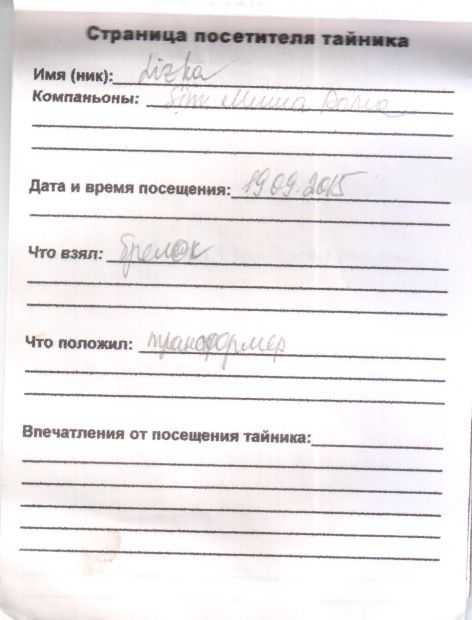 Страница посетителя тайника
Имя (ник): Lizka
Компаньоны: Sim Миша
Дата и время посещения: 19.09.2015
Что взял: брелок
Что положил: трансформер
Впечатления от посещения тайника: